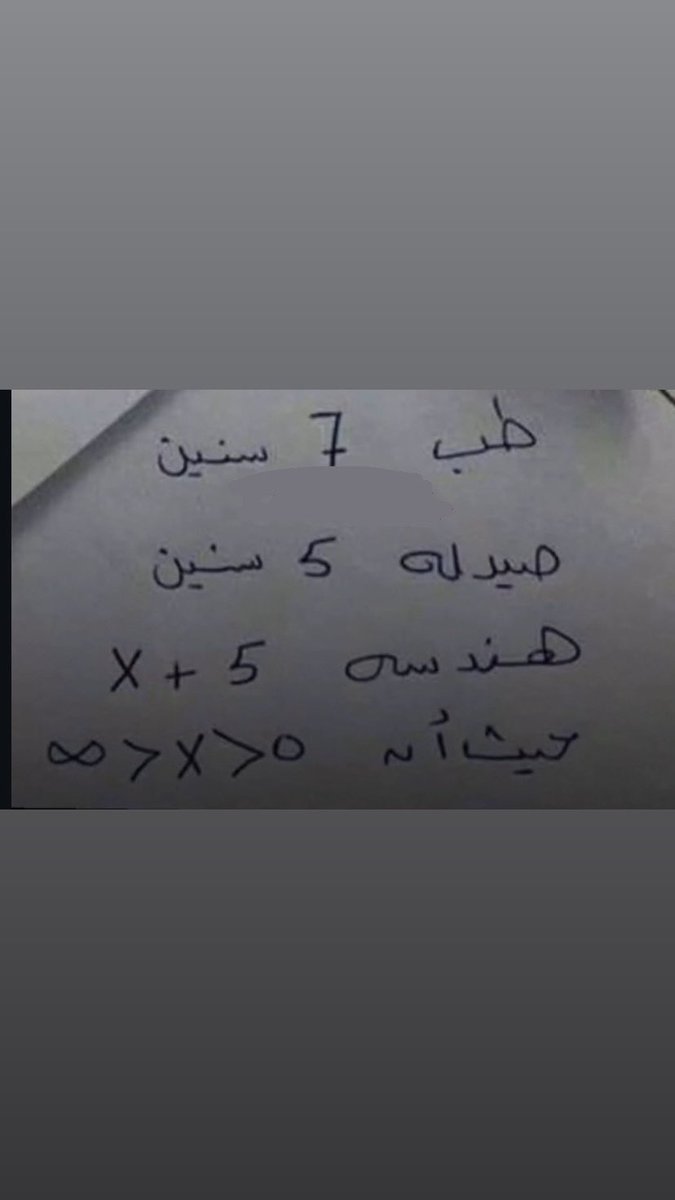 طب 7 سنين
صيدله 5 سنين
هندسه 5 + X
حيث أن ∞ > X > 0